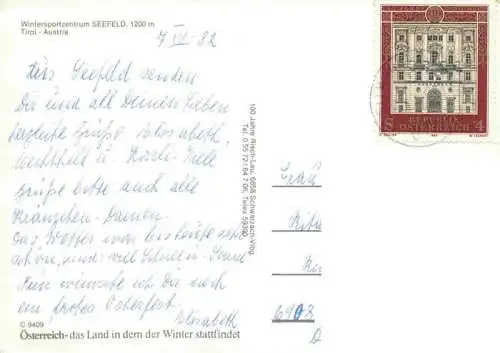 Wintersportzentrum SEEFELD, 1200 m
Tirol - Austria
7 III 82
Aus Seefeld senden
Dir und all Deinen Lieben
herzliche Grüße Elisabeth,
u. Karli. Viele
Grüße bitte auch alle
Kränzchen-Damen.
Das Wetter war bis heute sehr
schön, nur viel Schnee u.
Nun wünsche ich Dir noch
ein frohes Osterfest.
Elisabeth
C 9409
Österreich - das Land in dem der Winter stattfindet
100 Jahre Risch-Lau, 6858 Schwarzach-Vlbg.
Tel. 0 55 72/64 7 06, Telex 59390
REPUBLIK
S ÖSTERREICH 4
Frau
Rita
69